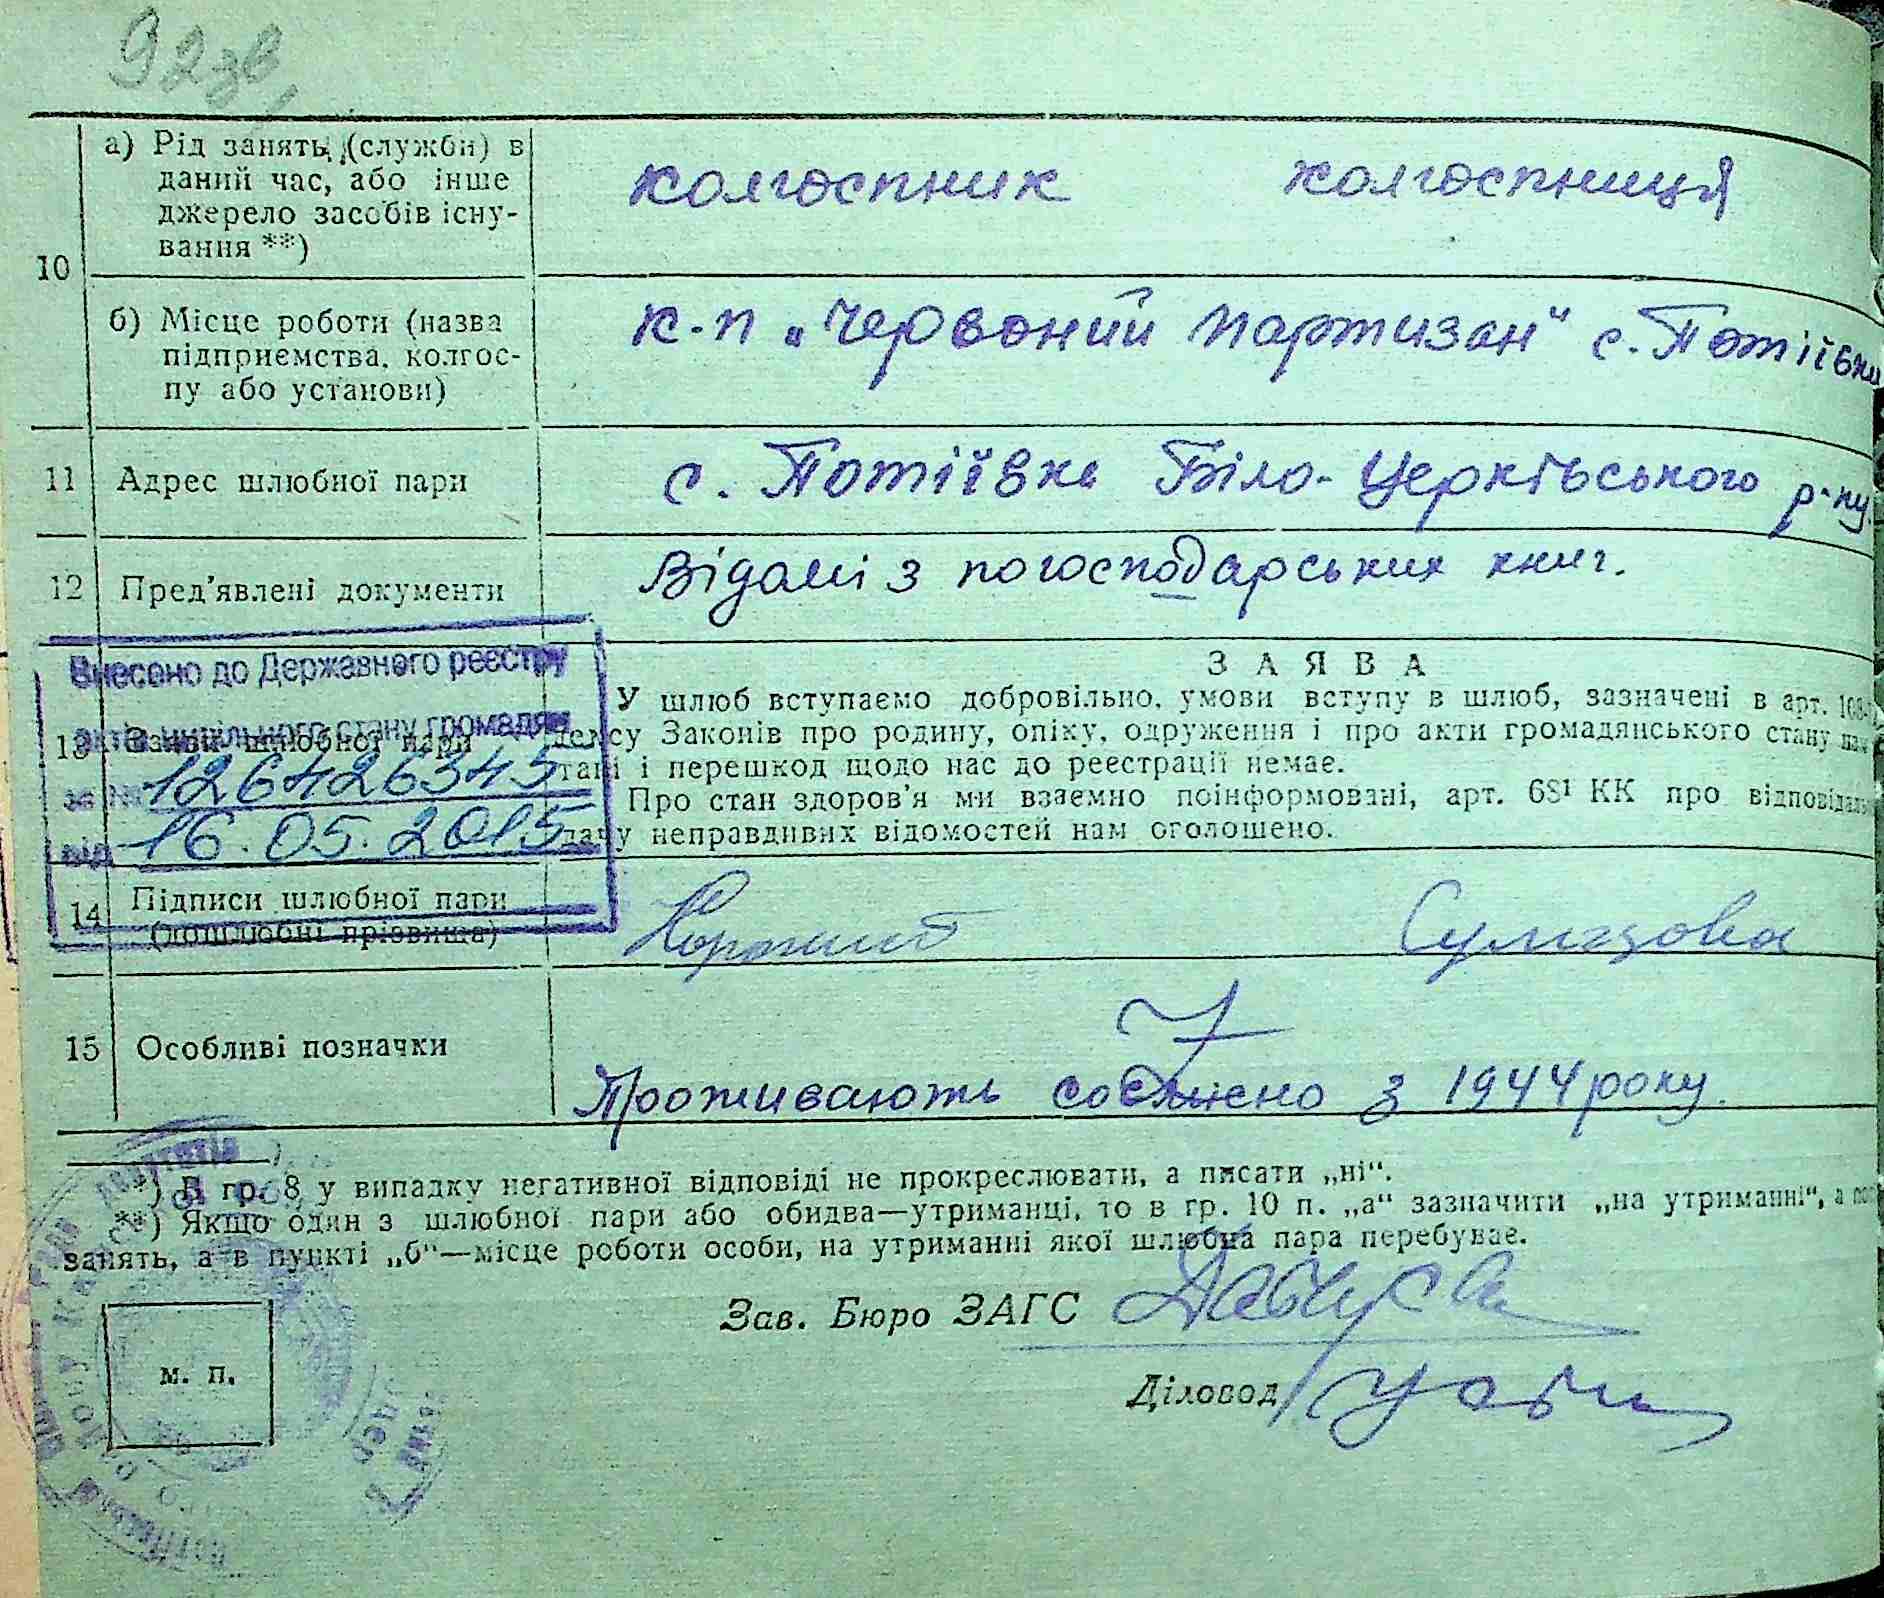 92зв
а) Рід занять (служби) в
даний час, або інше
джерело засобів існу-
вання **)
колгоспник колгоспниця
10
б) Місце роботи (назва
підприємства, колгос-
пу або установи)
к-п „Червоний партизан" с. Потіївка
11 Адрес шлюбної пари
с. Потіївка Біло-Церківського р-ну
12 Пред'явлені документи
Відомі з погосподарських книг.
Внесено до Державного реєстру
актів цивільного стану громадян
за № 126426345
від 16.05.2015
13 Заяви шлюбної пари
ЗАЯВА
У шлюб вступаємо добровільно, умови вступу в шлюб, зазначені в арт.
Законів про родину, опіку, одруження і про акти громадянського стану
і перешкод щодо нас до реєстрації немає.
Про стан здоров'я ми взаємно поінформовані, арт. 68¹ КК про
неправдивих відомостей нам оголошено.
14 Підписи шлюбної пари
(дошлюбні прізвища)
15 Особливі позначки
Проживають совмісно з 1944 року.
*) В гр. 8 у випадку негативної відповіді не прокреслювати, а писати „ні".
**) Якщо один з шлюбної пари або обидва—утриманці, то в гр. 10 п. „а" зазначити „на утриманні", а
занять, а в пункті „б"—місце роботи особи, на утриманні якої шлюбна пара перебуває.
Зав. Бюро ЗАГС
м. п.
Діловод